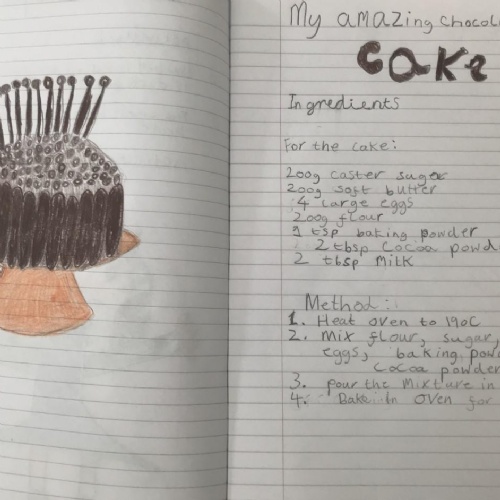 My amazing Chocol
Cake
Ingredients
For the cake:
200g caster sugar
200g soft butter
4 large eggs
200g flour
1 tsp baking powder
2 tbsp cocoa powd
2 tbsp milk
Method:
1. Heat oven to 190C
2. Mix flour, sugar,
eggs, baking powd
cocoa powder
3. pour the mixture in
4. Bake in oven for